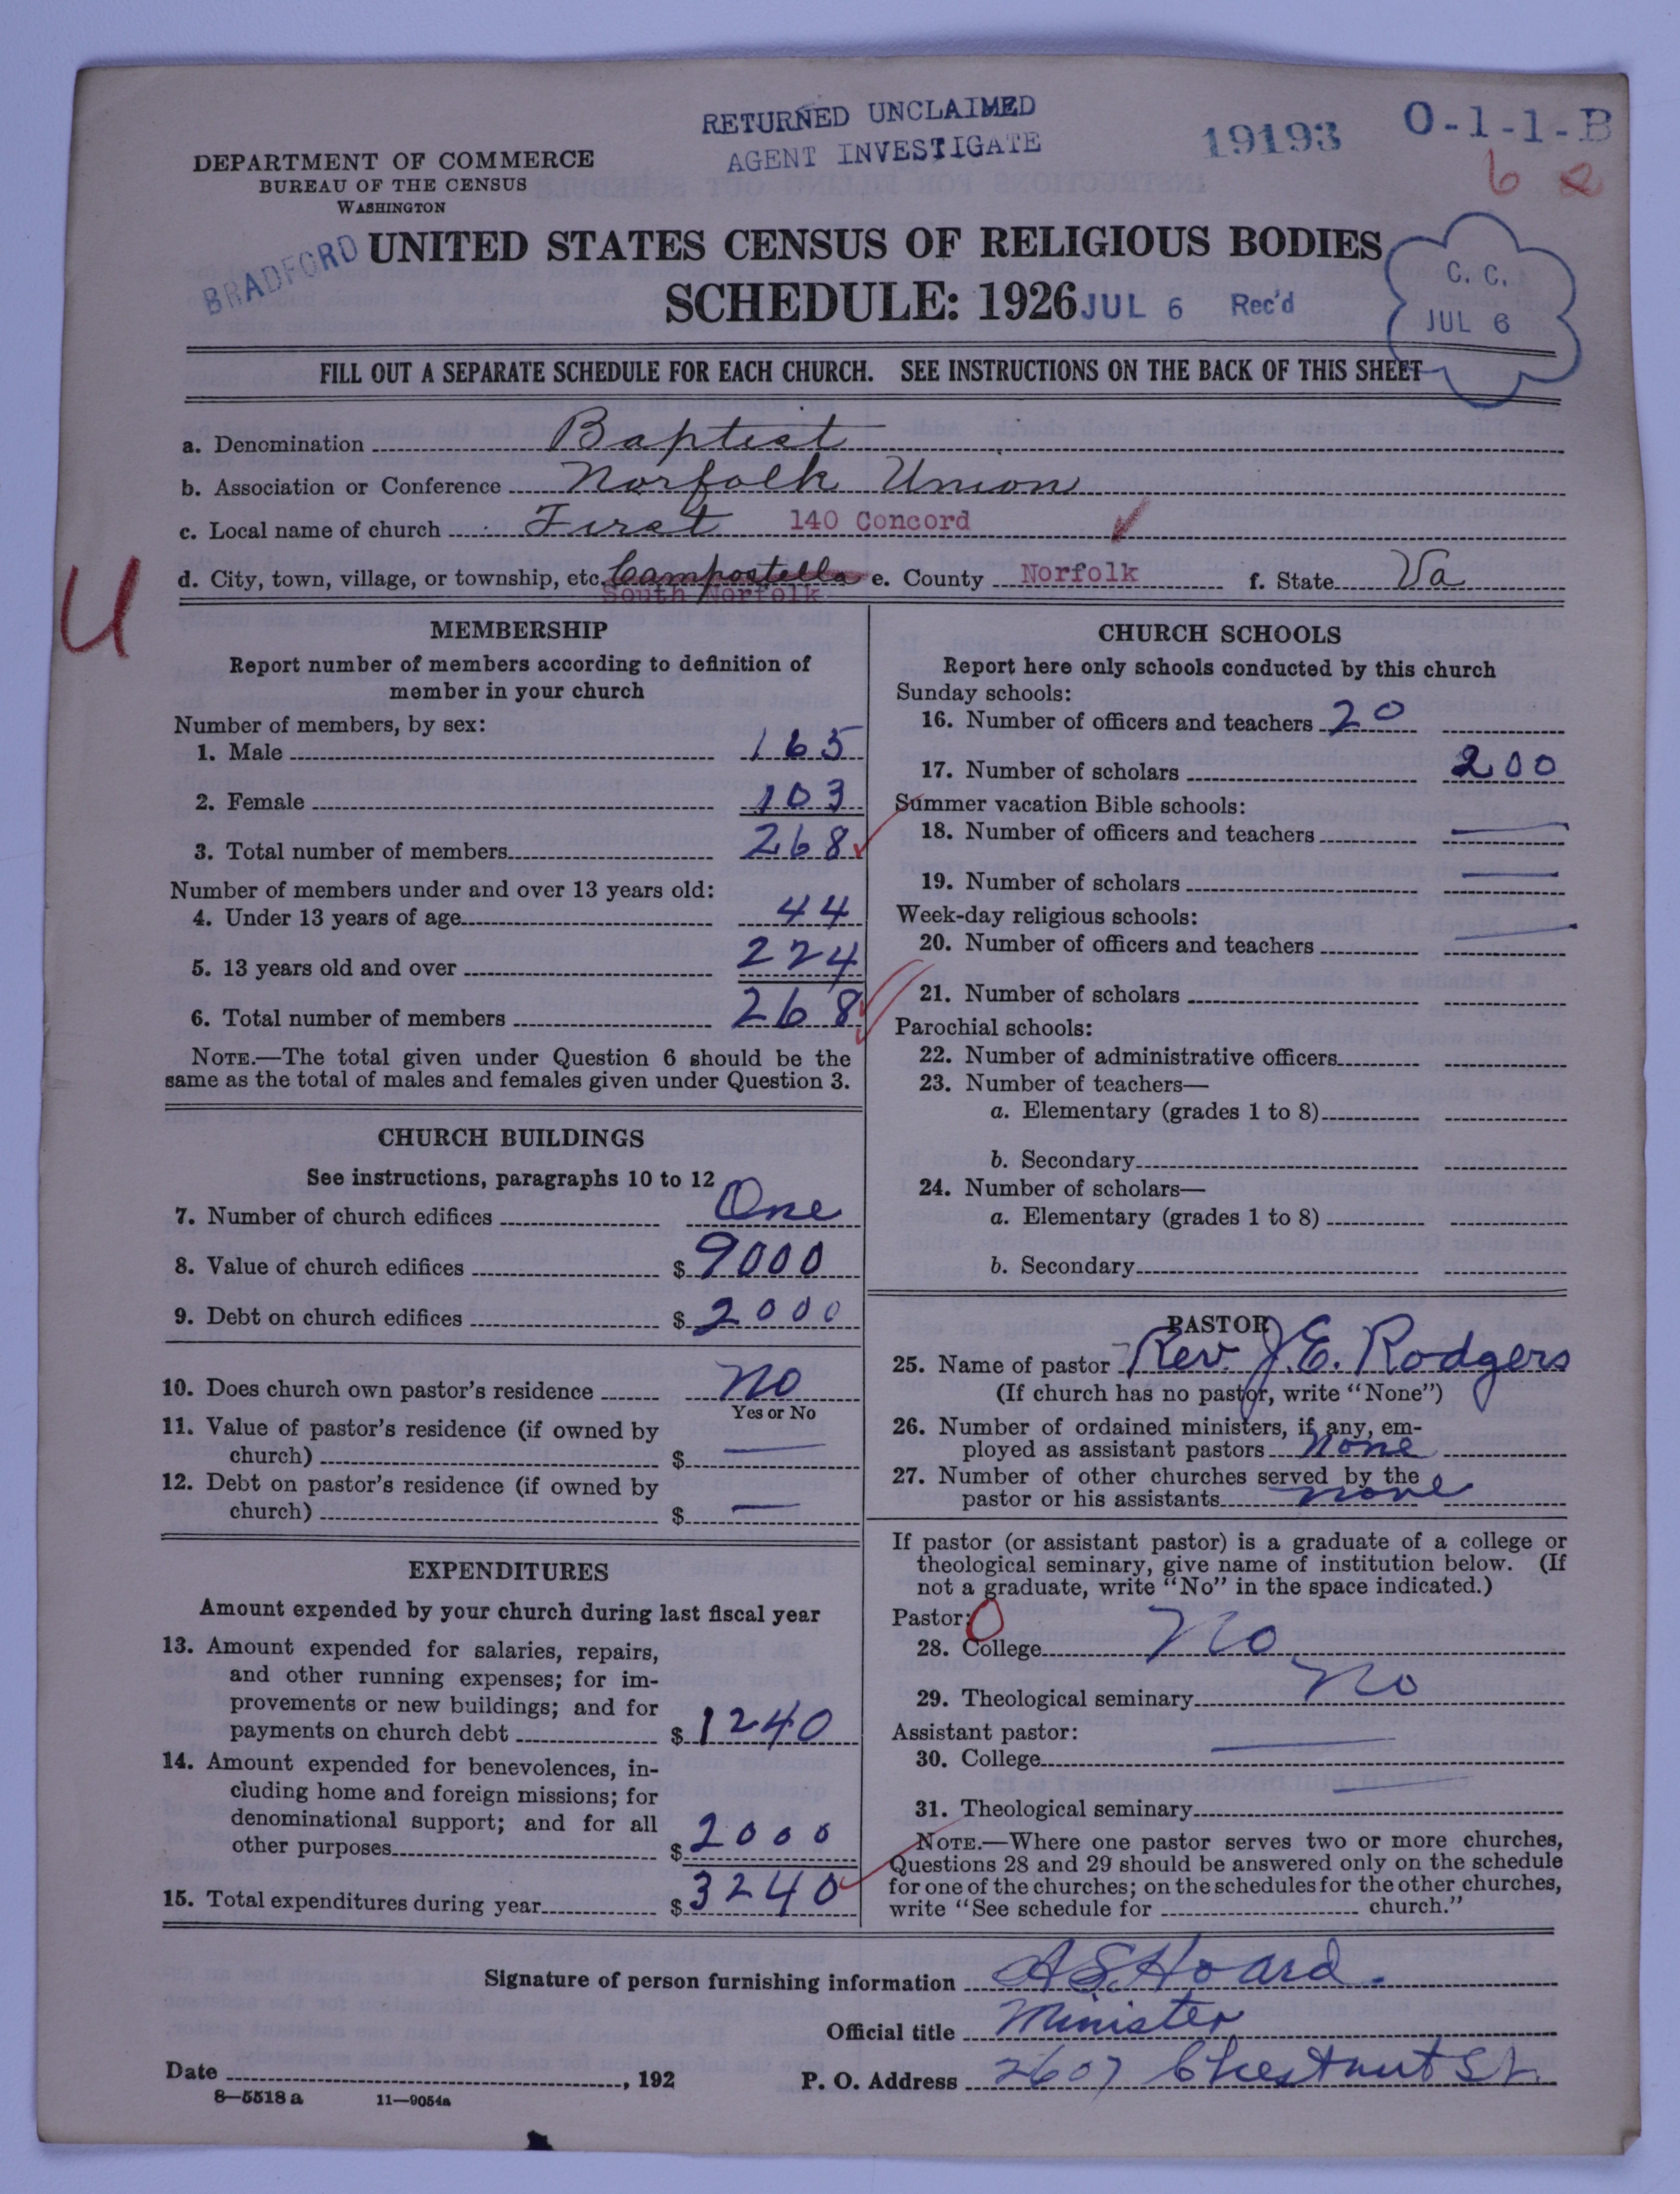 RETURNED UNCLAIMED
AGENT INVESTIGATE
19193
O-1-1-B
6
DEPARTMENT OF COMMERCE
BUREAU OF THE CENSUS
WASHINGTON
BRADFORD
UNITED STATES CENSUS OF RELIGIOUS BODIES
SCHEDULE: 1926 JUL 6 Rec'd
C. C.
JUL 6
FILL OUT A SEPARATE SCHEDULE FOR EACH CHURCH. SEE INSTRUCTIONS ON THE BACK OF THIS SHEET
a. Denomination Baptist
b. Association or Conference Norfolk Union
c. Local name of church First 140 Concord
d. City, town, village, or township, etc. Campostella e. County Norfolk f. State Va
South Norfolk
U
MEMBERSHIP
Report number of members according to definition of
member in your church
Number of members, by sex:
1. Male 165
2. Female 103
3. Total number of members 268
Number of members under and over 13 years old:
4. Under 13 years of age 44
5. 13 years old and over 224
6. Total number of members 268
NOTE.—The total given under Question 6 should be the
same as the total of males and females given under Question 3.
CHURCH BUILDINGS
See instructions, paragraphs 10 to 12
7. Number of church edifices One
8. Value of church edifices $ 9000
9. Debt on church edifices $ 2000
10. Does church own pastor's residence No
Yes or No
11. Value of pastor's residence (if owned by
church) $ —
12. Debt on pastor's residence (if owned by
church) $ —
EXPENDITURES
Amount expended by your church during last fiscal year
13. Amount expended for salaries, repairs,
and other running expenses; for im-
provements or new buildings; and for
payments on church debt $ 1240
14. Amount expended for benevolences, in-
cluding home and foreign missions; for
denominational support; and for all
other purposes $ 2000
15. Total expenditures during year $ 3240
CHURCH SCHOOLS
Report here only schools conducted by this church
Sunday schools:
16. Number of officers and teachers 20
17. Number of scholars 200
Summer vacation Bible schools:
18. Number of officers and teachers —
19. Number of scholars —
Week-day religious schools:
20. Number of officers and teachers —
21. Number of scholars
Parochial schools:
22. Number of administrative officers
23. Number of teachers—
a. Elementary (grades 1 to 8)
b. Secondary
24. Number of scholars—
a. Elementary (grades 1 to 8)
b. Secondary
PASTOR
25. Name of pastor Rev. J E. Rodgers
(If church has no pastor, write "None")
26. Number of ordained ministers, if any, em-
ployed as assistant pastors none
27. Number of other churches served by the
pastor or his assistants none
If pastor (or assistant pastor) is a graduate of a college or
theological seminary, give name of institution below. (If
not a graduate, write "No" in the space indicated.)
Pastor: 0
28. College No
29. Theological seminary No
Assistant pastor:
30. College —
31. Theological seminary —
NOTE.—Where one pastor serves two or more churches,
Questions 28 and 29 should be answered only on the schedule
for one of the churches; on the schedules for the other churches,
write "See schedule for church."
Signature of person furnishing information A S. Hoard.
Official title Minister
Date , 192 P. O. Address 2607 Chestnut St.
8—5518 a 11—9054a